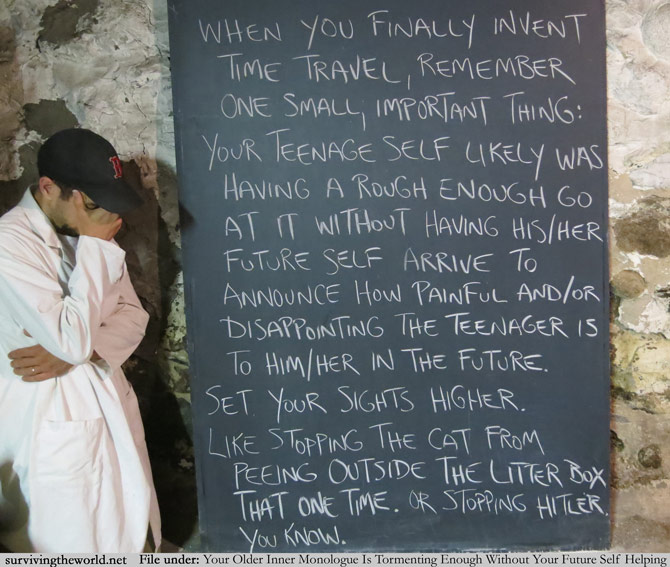 WHEN YOU FINALLY INVENT
TIME TRAVEL, REMEMBER
ONE SMALL, IMPORTANT THING:
YOUR TEENAGE SELF LIKELY WAS
HAVING A ROUGH ENOUGH GO
AT IT WITHOUT HAVING HIS/HER
FUTURE SELF ARRIVE TO
ANNOUNCE HOW PAINFUL AND/OR
DISAPPOINTING THE TEENAGER IS
TO HIM/HER IN THE FUTURE.
SET YOUR SIGHTS HIGHER.
LIKE STOPPING THE CAT FROM
PEEING OUTSIDE THE LITTER BOX
THAT ONE TIME. OR STOPPING HITLER.
YOU KNOW.
survivingtheworld.net File under: Your Older Inner Monologue Is Tormenting Enough Without Your Future Self Helping